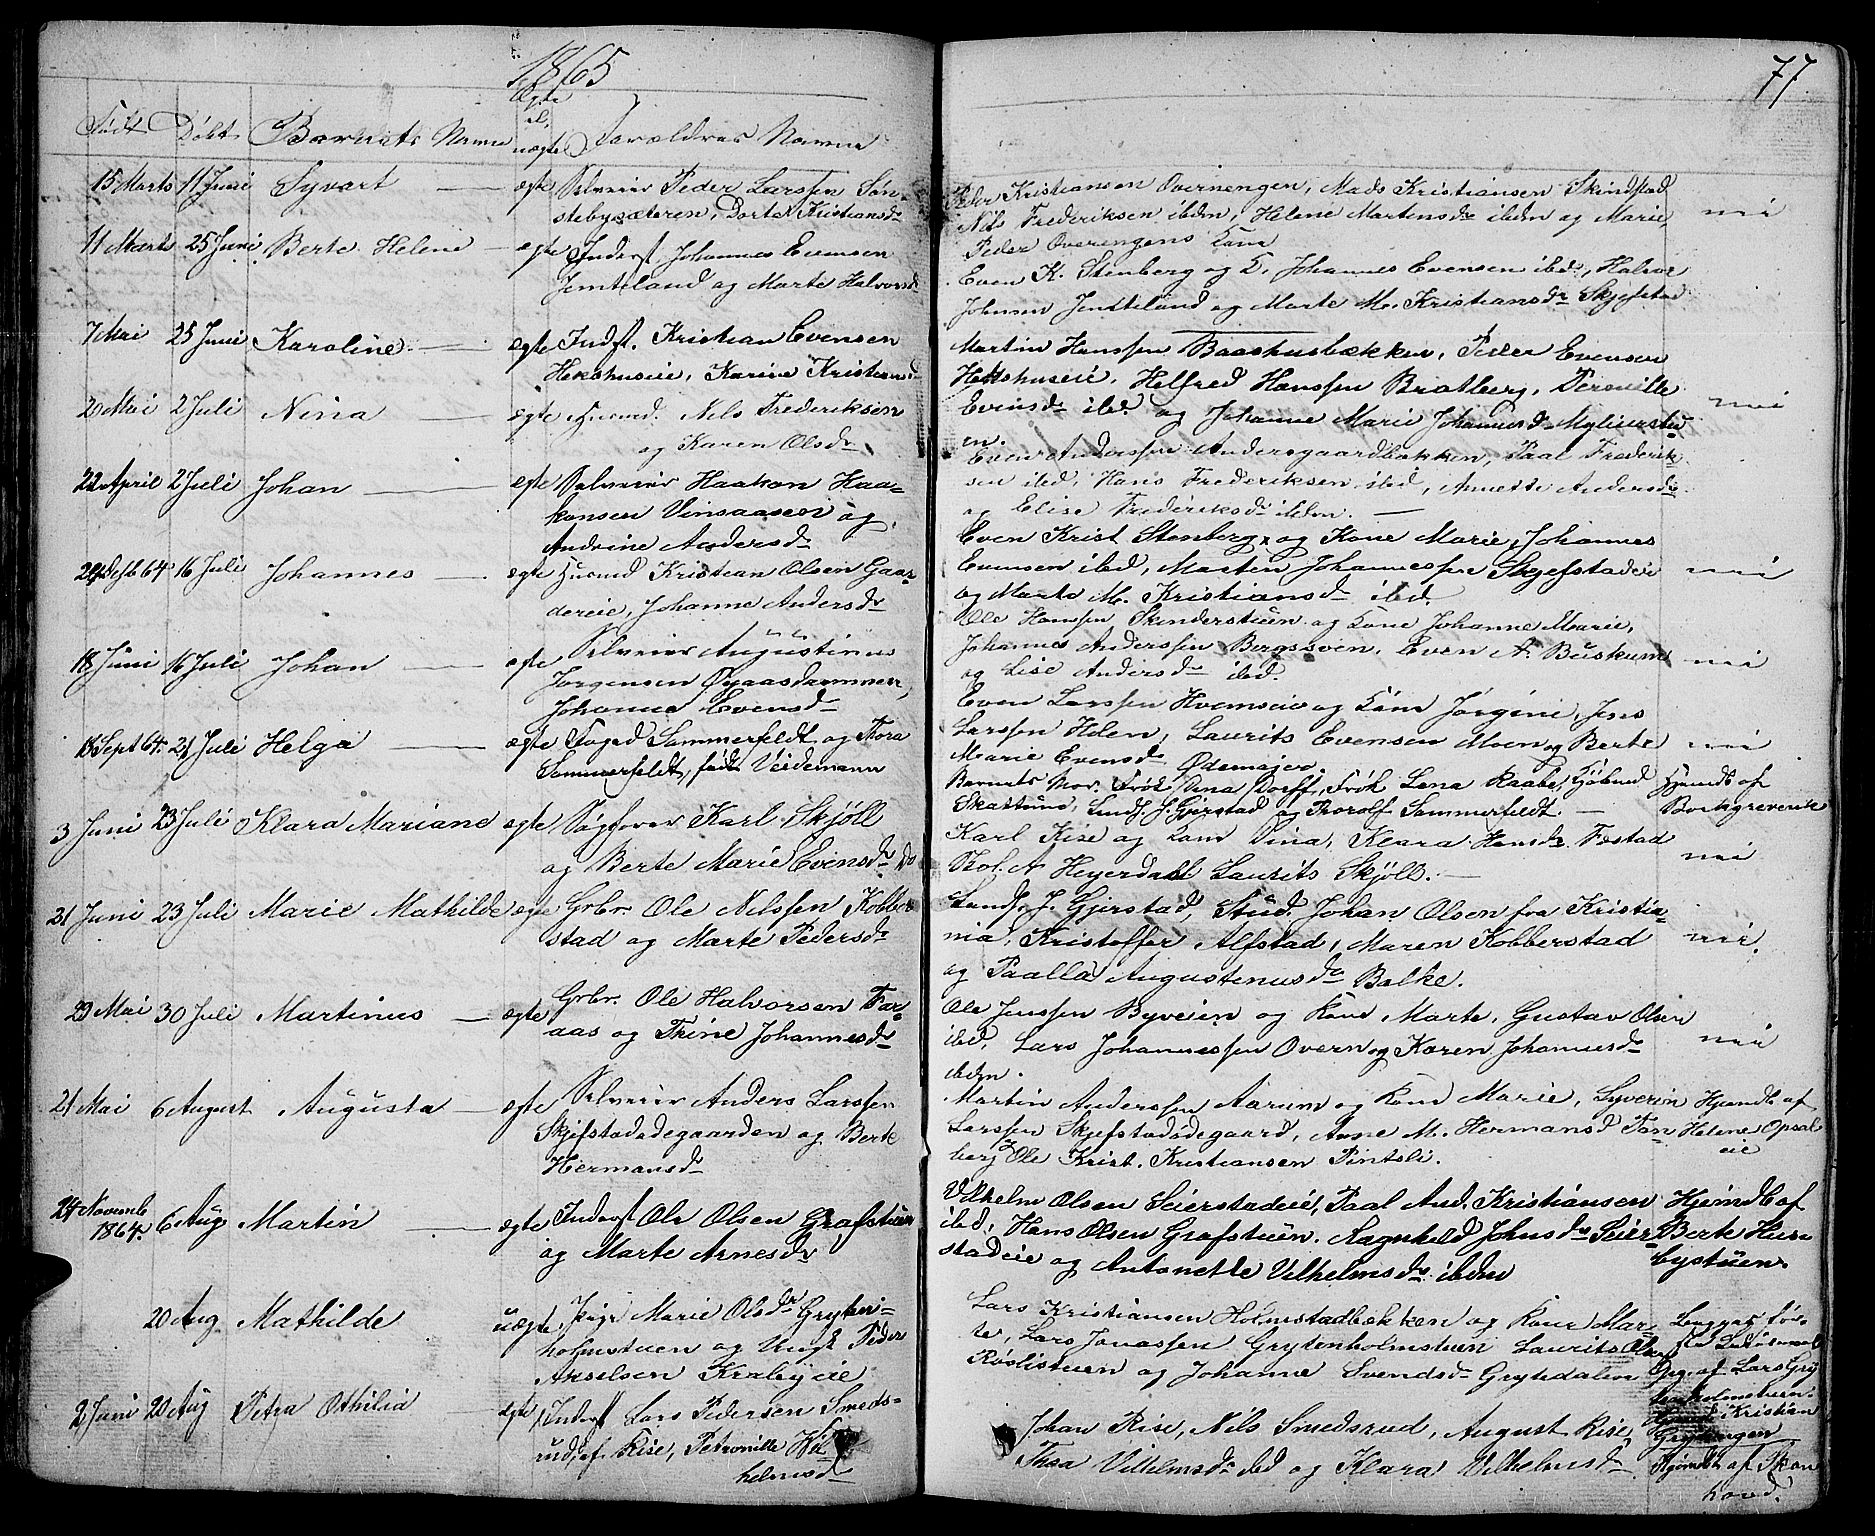 1865
77
Ægte
el.
Født Døbt Barnets Navne uægte Forældres Navne
15 Marts 11 Juni Syvert ægte Selveier Peder Larssen Søn-
stebysæteren, Dorte Kristiansdr
Peder Kristiansen Overnengen, Mads Kristiansen Skindstad
Nils Frederiksen ibdm, Helene Martinsdr ibdm og Marie,
Peder Overengens Kone
nei
11 Marts 25 Juni Berte Helene ægte Inderst Johannes Evensen
Jemteland og Marte Halvorsdr
Even K. Stenberg og K. Johannes Evensen ibd., Halvor
Johnsen Jemteland og Marte M. Kristiansdr Skjefstad
7 Mai 25 Juni Karoline ægte Indst. Kristian Evensen
Hekshuseie, Karine Kristiansd
Martin Hanssen Baashusbækken, Peder Evensen
Hekshuseie, Helfred Hanssen Bratberg, Pernille
Evensdr ibd. og Johanne Marie Johannesd Myliverstu-
en.
nei
20 Mai 2 Juli Nina ægte Husmd. Nils Frederiksen
og Karen Olsdr
Even Anderssen Andersgaardbakken, Paal Frederik-
sen ibd, Hans Frederiksen ibd, Annette Andersdr
og Elise Frederiksdr ibdm.
22 April 2 Juli Johan ægte Selveier Haakon Haa-
konsen Vinsaaseen og
Andrine Andersdr
Even Krist Stenberg og Kone Marie, Johannes
Evensen ibd, Martin Johannessen Skjefstadeie
og Marte M. Kristiansdr ibd.
nei
24 Desb 64 16 Juli Johannes ægte Husmd Kristian Olsen Gaar-
dereie, Johanne Andersdr
Ole Hanssen Skinderstuen og Kone Johanne Marie,
Johannes Anderssen Bergssven, Even A. Buskum
og Lise Andersdr ibd.
nei
18 Juni 16 Juli Johan ægte Selveier Augustinus
Jørgensen Øyaasdammen,
Johanne Evensdr
Even Larssen Hvemseie og Kone Jørgine, Jens
Larssen Helen, Laurits Evensen Moen og Berte
Marie Evensdr Ødemajer.
nei
13 Sept 64 21 Juli Helga ægte Foged Sommerfeldt og Thora
Sommerfeldt, født Veidemann
Barnets Mor, Frøk Dina Dorff, Frøk Lena Raabe, Kjøbmd
Skattum, Landh. J. Gjerstad og Thorolf Sommerfeldt.
Hjemdb af
Borchgrevenk
3 Juni 23 Juli Klara Mariane ægte Sagfører Karl Skjøll
og Berte Marie Evensdr
Karl Kise og Kone Dina, Klara Hansdr Fæstad
A Heyerdall Laurits Skjøll.
nei
21 Juni 23 Juli Marie Mathilde ægte Grbr. Ole Nilssen Kobber-
stad og Marte Pedersdr
Landh J. Gjerstad, Stud. Johan Olsen fra Kristia-
nia, Kristoffer Alfstad, Maren Kobberstad
og Paalla Augustinusdr Balke.
nei.
29 Mai 30 Juli Martinus ægte Grbr. Ole Halvorsen Far-
aas og Trine Johannesdr
Ole Jenssen Byveien og Kone Marte, Gustav Olsen
ibd, Lars Johannessen Overn og Karen Johannesdr
ibdm.
nei
21 Mai 6 August Augusta ægte Selveier Anders Larssen
Skjefstadødegaarden og Berte
Hermansdr
Martin Anderssen Aarum og Kone Marie, Syverin
Larssen Skjefstadødegaard, Anne M. Hermansd Tan-
berg Ole Krist. Kristiansen Pintsli.
Hjemdb af
Helene Opsal-
eie
24 Novemb
1864. 6 Aug Martin ægte Inderst Ole Olsen Grafstuen
og Marte Arnesdr
Vilhelm Olsen Seierstadeie, Paal And. Kristiansen
ibd, Hans Olsen Grafstuen. Ragnhild Johnsdr Seier-
stadeie og Antonette Vilhelmsdr ibdm
Hjemdb af
Berte Hus-
bystuen
20 Aug. Mathilde uægte Pige Marie Olsdr Gryten-
holmstuen og Ungk Peder
Akselsen Krabyeie
Lars Kristiansen Holmstadbækken og Kone Mar-
te, Lars Jonassen Grytenholmstuen Laurits Olsen
Røslistuen og Johanne Svendsdr Grytedalen
Opg. af Lars Gry-
tenholmstuen
Kristian
2 Juni 20 Aug Petra Othilia ægte Inderst Lars Pedersen Smeds-
rud af Kise, Petronille Vil-
helmsd
Johan Kise, Nils Smedsrud, August Kise,
Thea Vilhelmsdr ibd og Klara Vilhelmsdr
Hjemdb af Skon-
hovd.